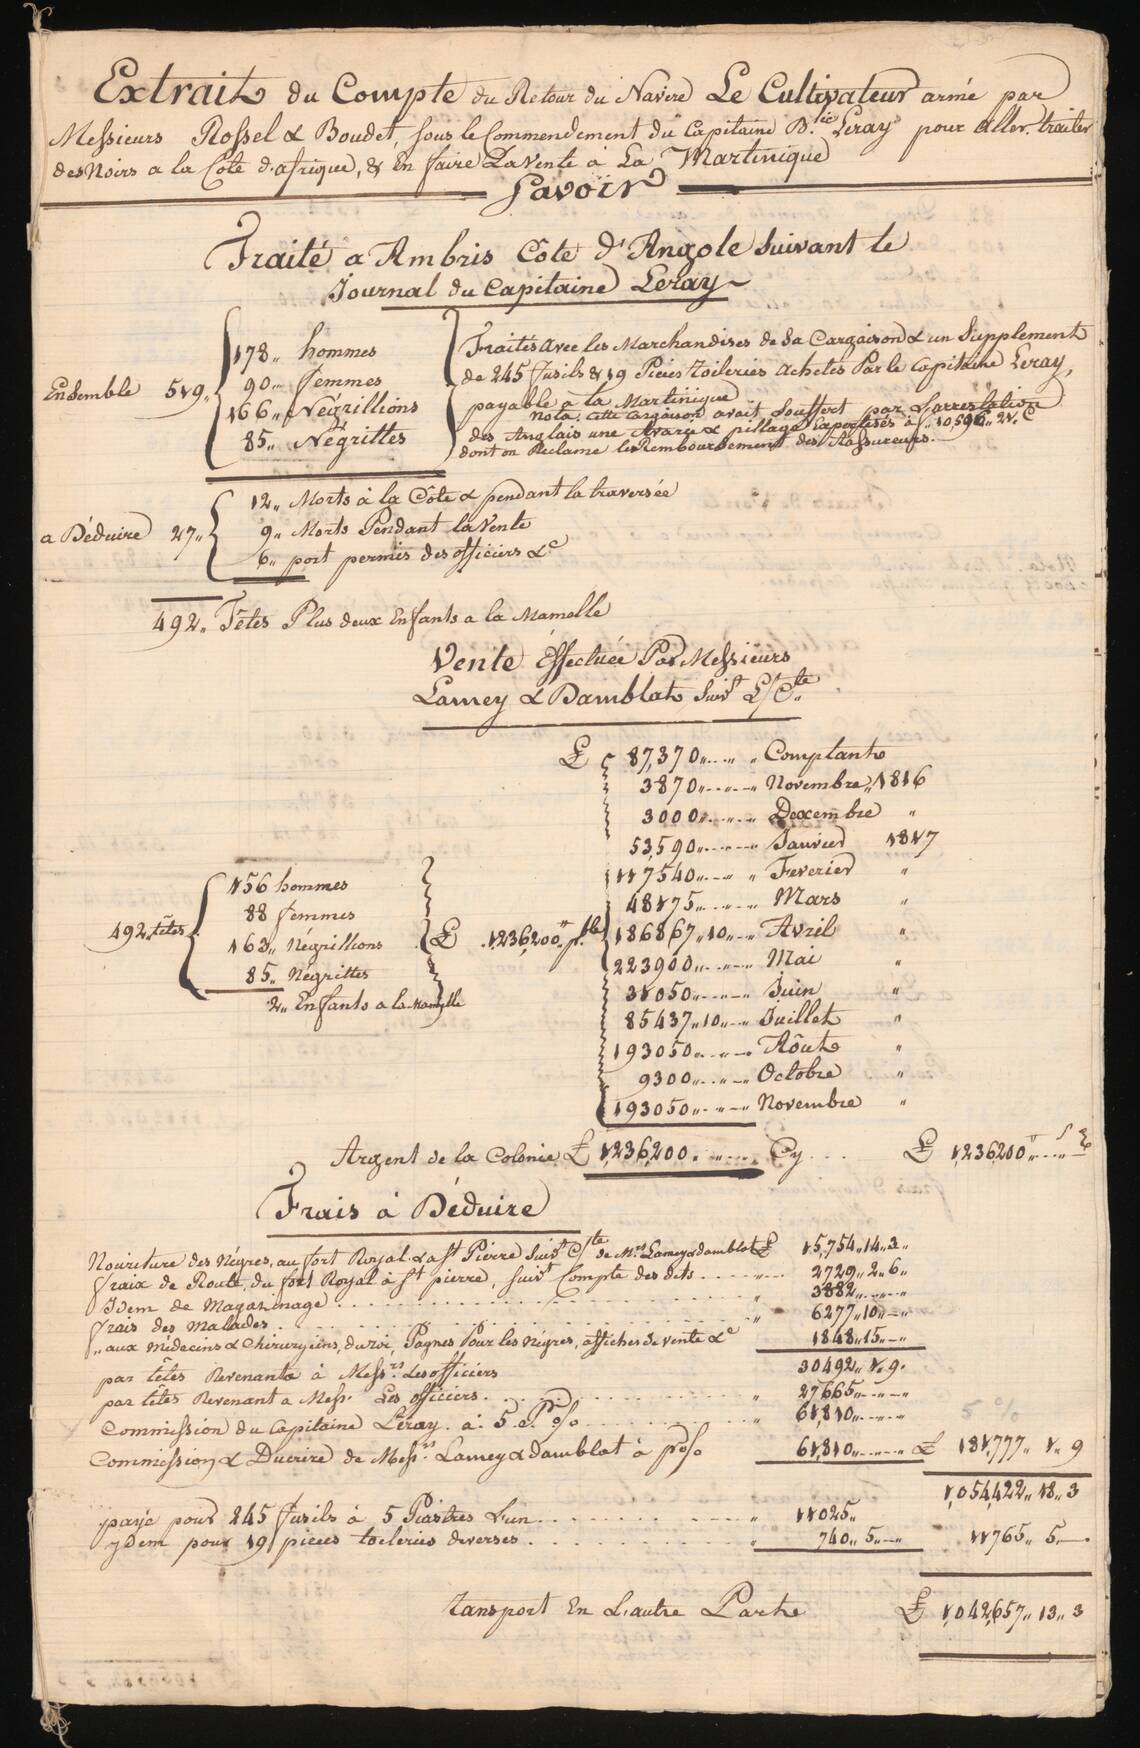 Extrait du Compte du Retour du Navire Le Cultivateur armé par
Messieurs Rossel & Boudet, sous le Commendement du Capitaine B.te Leray pour aller traiter
des Noirs a la Côte d'afrique, & En faire La Vente à La Martinique
Savoir
Traité a Ambris Côte d'Angole Suivant le
Journal du Capitaine Leray
Ensemble 519,,
178,, hommes
90,, femmes
166,, Négrillions
85,, Négrittes
Traités avec les Marchandises de Sa Cargaison & un Supplement
de 245 fusils & 19 Pieces toileries achetés Par le Capitaine Leray,
payable a la Martinique
Nota. Cette Cargaison avait Souffert par L'arrestation
des Anglais une Avarie & pillage
dont on Reclame le Remboursement des Assureurs.
a Déduire 27,,
12,, Morts à la Côte & pendant la traversée
9,, Morts Pendant la Vente
6,, port permis des officiers &c
492,, Têtes Plus deux Enfants a la Mamelle
Vente Effectuée Par Messieurs
Lamey & Damblat Suivt L/Cte
£ 87,370,,..,, ,, Comptant
3870,,..,,..,, Novembre,, 1816
3000,,..,,..,, Decembre ,,
53,590,,..,,..,, Janvier 1817
117540,,..,, ,, Feverier ,,
48175,,..,,..,, Mars ,,
186867,,10,,.. Avril ,,
223900,,..,,..,, Mai ,,
31050,,..,,..,, Juin ,,
85437,,10,,.. Juillet ,,
193050,,..,,.. Aôut ,,
9300,,..,,.. Octobre ,,
193050,,..,,.. Novembre ,,
492 têtes
156 hommes
88 femmes
163,, Négrillions
85,, Négrittes
2,, Enfants a la Mamelle
£ 1,236,200,, pble
Argent de la Colonie £ 1,236,200,,..,,... Cy.... £ 1,236,200,,..,,..
Frais à Déduire
Nouriture des Négres, au fort Royal & a St Pierre Suivt C/te de Mrs Lamey & damblat £ 15,754,,14,,3,,
fraix de Route, du fort Royal à St pierre, Suivt Compte des dits ....... 2729,,2,,6,,
Idem de Magazinage .......... ,, 3882,,..,,..
frais des Malades .......... ,, 6277,,10,,..
,, aux Médecins & Chirurgiens, du roi, Pagnes Pour les Négres, affiches de Vente &c 1848,,15,,..
30492,,1,,9,,
par têtes Revenant à Messrs Les officiers
par têtes Revenant a Messr Les officiers .......... ,, 27665,,..,,..
Commission du Capitaine Leray. à 5 Pr%o .......... ,, 61,810,,..,,..
5 %
Commission & Ducrire de Messrs Lamey & damblat à pr%o 61,810,,..,,.. £ 181,777,,1,,9
1,054,422,,18,,3
payé pour 245 fusils à 5 Piastres L'un .......... ,, 11025,,
ydem pour 19 pieces toileries diverses .......... ,, 740,,5,,.. 11765,,5,,..
transport En L'autre Part £ 1,042,657,,13,,3